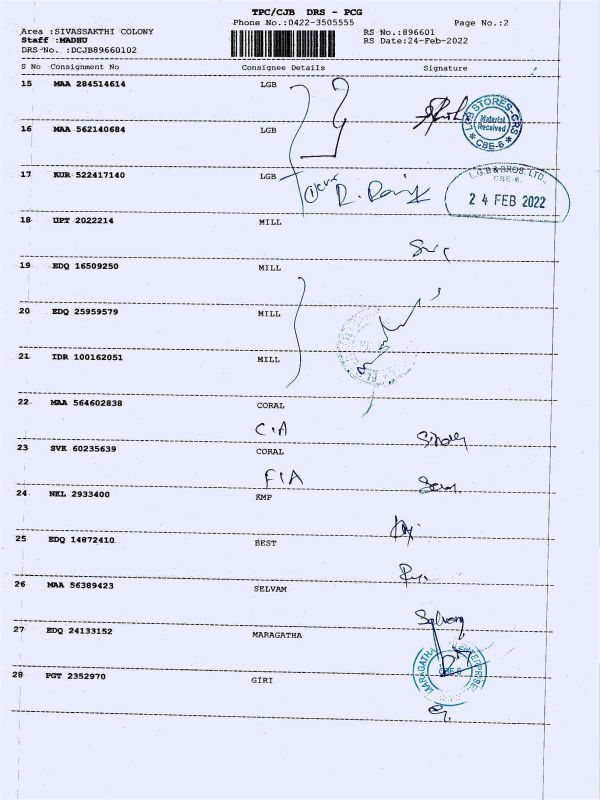 TPC/CJB DRS - PCG
Phone No.:0422-3505555 Page No.:2
Area :SIVASSAKTHI COLONY RS No.:896601
Staff :MADHU RS Date:24-Feb-2022
DRS No. :DCJB89660102
S No Consignment No Consignee Details Signature
15 MAA 284514614 LGB
LGB STORES-GRS
Material Received
CBE-6
16 MAA 562140684 LGB
17 KUR 522417140 LGB
L.G.B & BROS. LTD.,
CBE-6.
24 FEB 2022
18 UPT 2022214 MILL
19 EDQ 16509250 MILL
20 EDQ 25959579 MILL
21 IDR 100162051 MILL
22 MAA 564602838 CORAL
C.A
23 SVK 60235639 CORAL
FIA
24 NKL 2933400 KMP
25 EDQ 14872410 BEST
26 MAA 56389423 SELVAM
Selvam
27 EDQ 24133152 MARAGATHA
MARAGATHA ENTERPRISE
CBE-6
28 PGT 2352970 GIRI